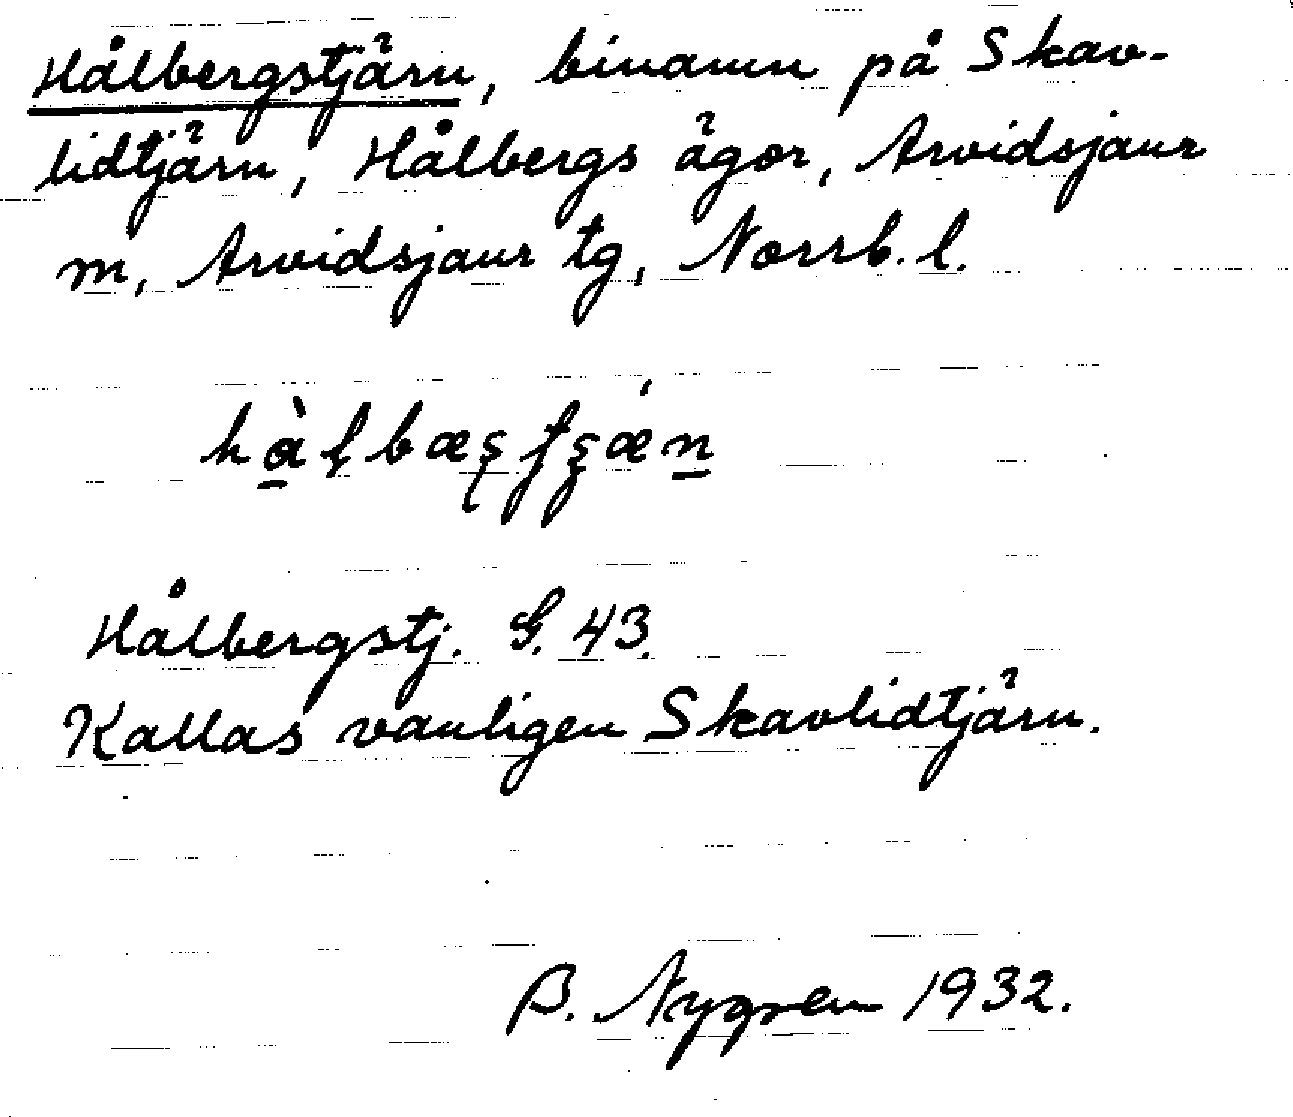 Hålbergstjärn, binamn på Skav-
lidtjärn, Hålbergs ägor, Arvidsjaur
m, Arvidsjaur tg, Norrb. l.
Hålbergstj. G. 43.
Kallas vanligen Skavlidtjärn.
B. Nygren 1932.